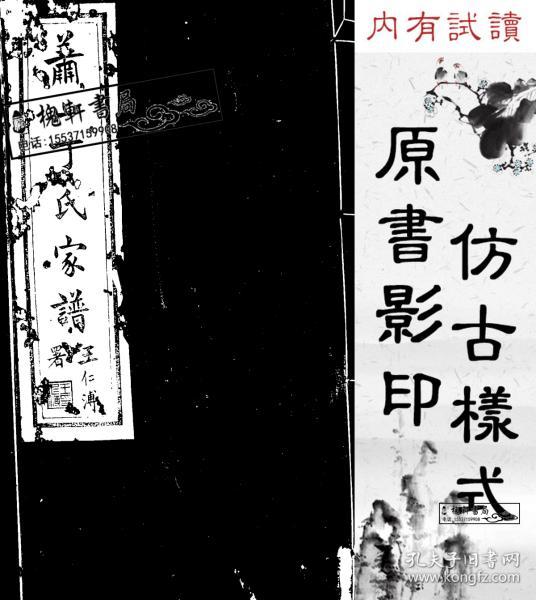 蕭丁氏家譜
王仁溥
署
槐軒書局
电话:15537159908
内有試讀
原書影印
仿古樣式
槐軒書局
电话:15537159908
孔夫子旧书网
www.kongfz.com